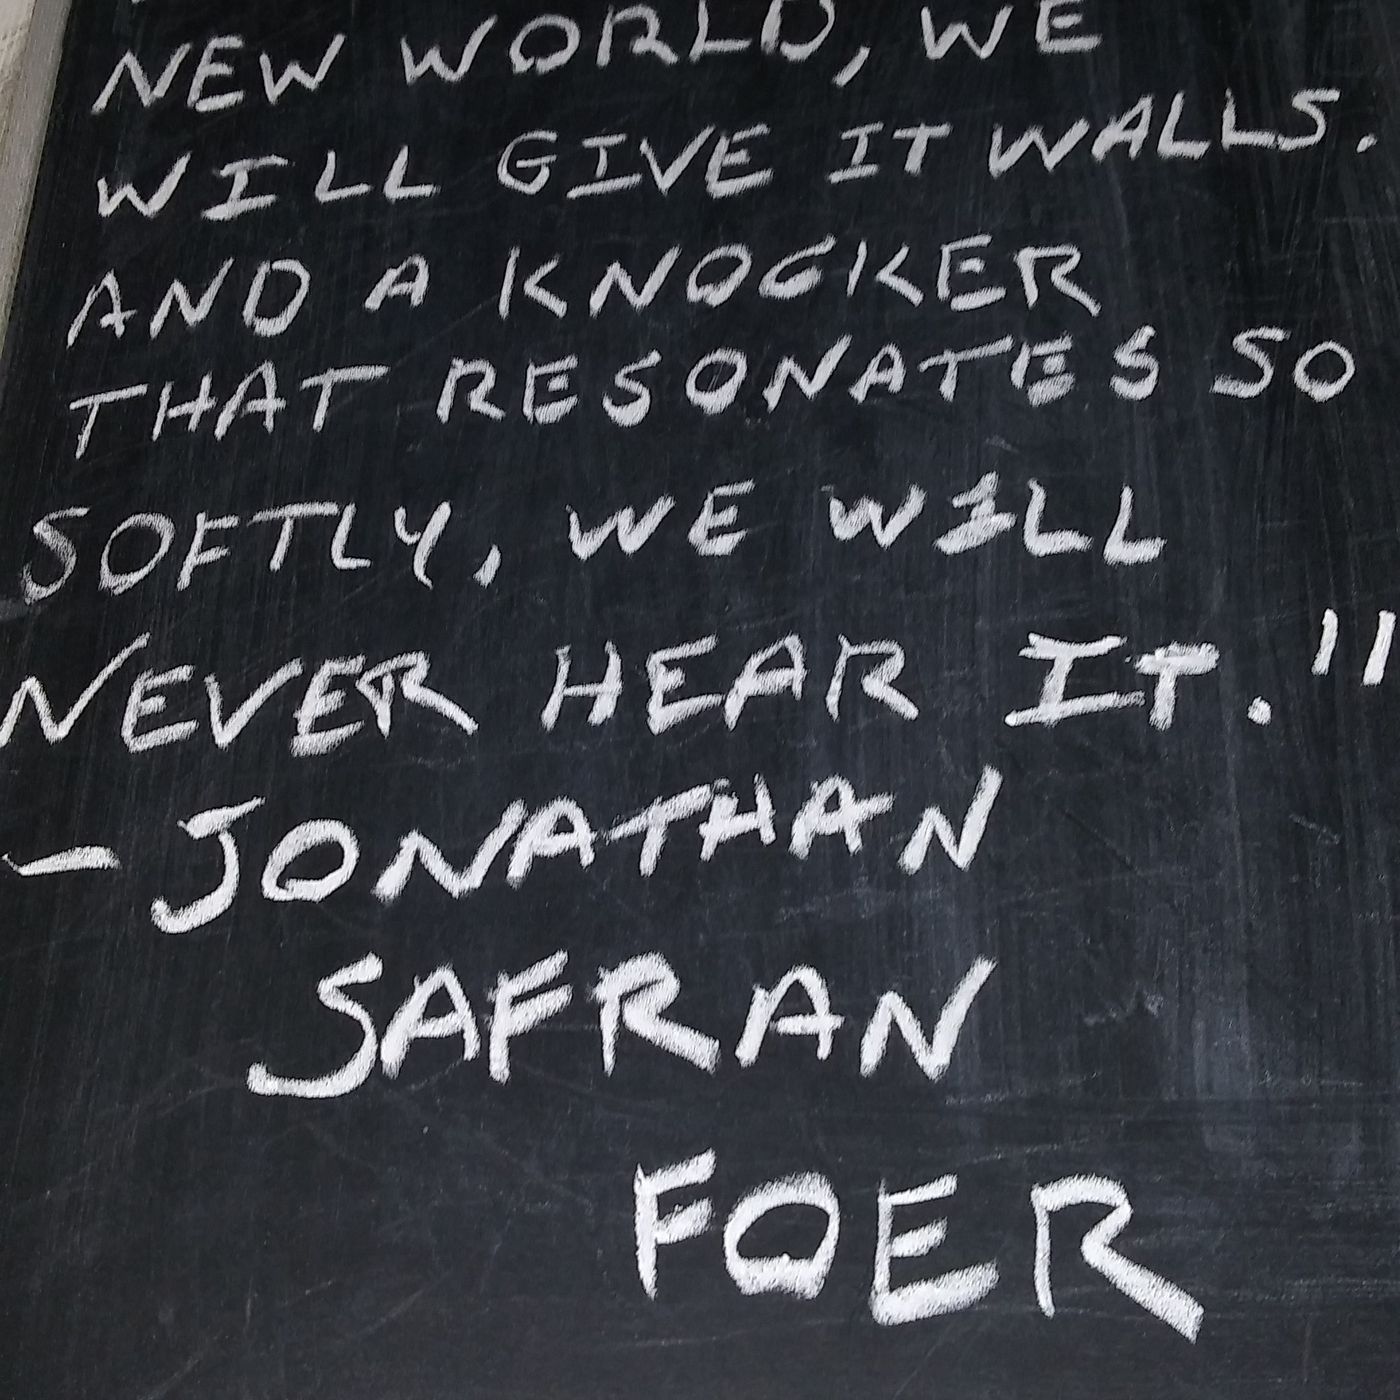 NEW WORLD, WE
WILL GIVE IT WALLS.
AND A KNOCKER
THAT RESONATES SO
SOFTLY, WE WILL
NEVER HEAR IT."
- JONATHAN
SAFRAN
FOER